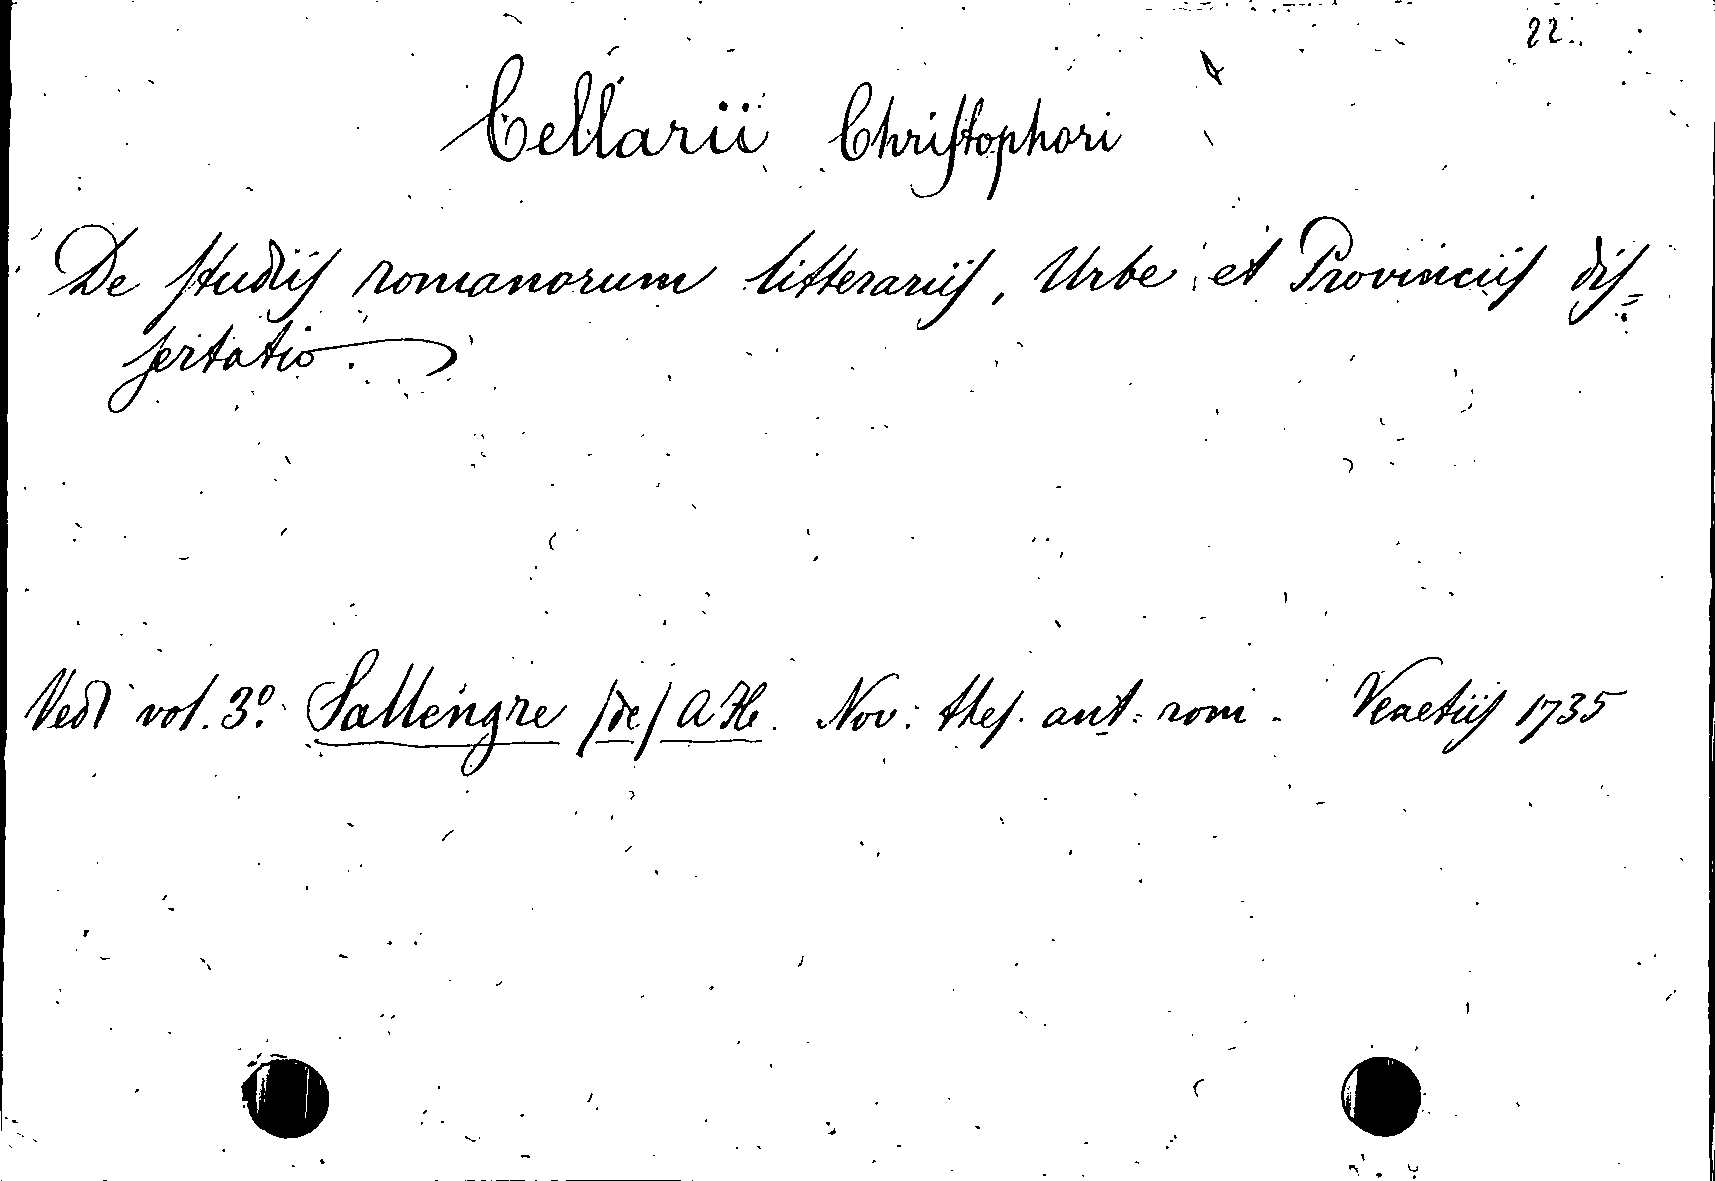 22.
Cellarii Christophori
De studiis romanorum litterariis, Urbe et Provinciis dis=
sertatio.
Vedi vol. 3º. Sallengre (de) A H. Nov: thes. ant: rom. Venetiis 1735